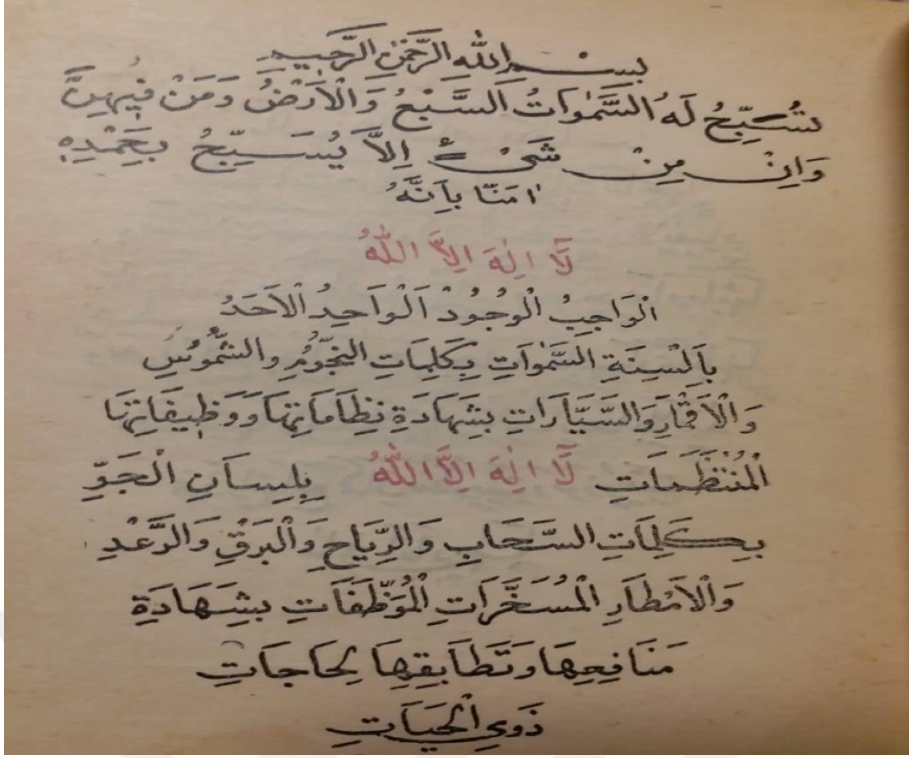 بِسْمِ اللهِ الرَّحْمٰنِ الرَّحِيمِ
تُسَبِّحُ لَهُ السَّمٰوَاتُ السَّبْعُ وَالْاَرْضُ وَمَنْ فِيهِنَّ
وَاِنْ مِنْ شَىْءٍ اِلَّا يُسَبِّحُ بِحَمْدِهِ
اٰمَنَّا بِاَنَّهُ
لَٓا اِلٰهَ اِلَّا اللهُ
الْوَاجِبُ الْوُجُودْ اَلْوَاحِدُ الْاَحَدُ
بِاَلْسِنَةِ السَّمٰوَاتِ بِكَلِمَاتِ النُّجُومِ وَالشُّمُوسِ
وَالْاَقْمَارِ وَالسَّيَّارَاتِ بِشَهَادَةِ نِظَامَاتِهَا وَوَظِيفَاتِهَا
الْمُنْتَظَمَاتِ لَٓا اِلٰهَ اِلَّا اللهُ بِلِسَانِ الْجَوِّ
بِكَلِمَاتِ السَّحَابِ وَالرِّيَاحِ وَالْبَرْقِ وَالرَّعْدِ
وَالْاَمْطَارِ الْمُسَخَّرَاتِ الْمُوَظَّفَاتِ بِشَهَادَةِ
مَنَافِعِهَا وَتَطَابُقِهَا لِحَاجَاتِ
ذَوِي الْحَيَاتِ